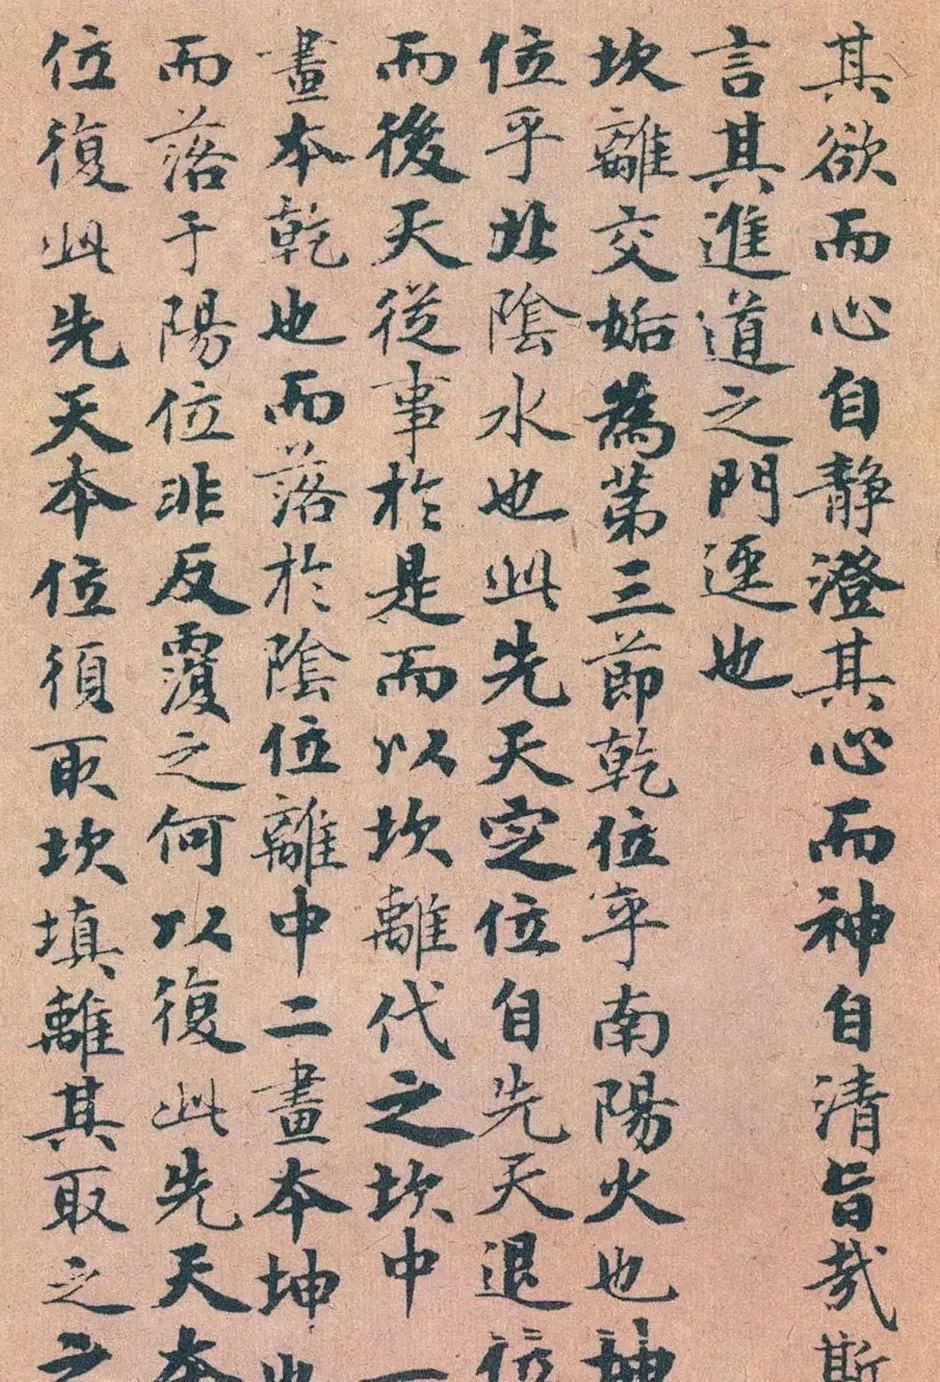 其欲而心自靜澄其心而神自清旨哉斯
言其進道之門逕也
坎離交姤為第三節乾位乎南陽火也坤
位乎北陰水也此先天定位自先天退位
而後天從事於是而以坎離代之坎中一
畫本乾也而落於陰位離中二畫本坤也
而落于陽位非反覆之何以復此先天本
位復此先天本位須取坎填離其取之之